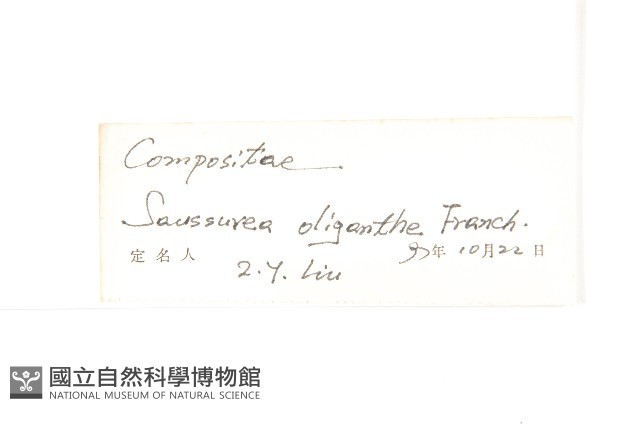 Compositae
Saussurea oligantha Franch.
定名人 Z.Y. Liu 年10月22日
國立自然科學博物館
NATIONAL MUSEUM OF NATURAL SCIENCE